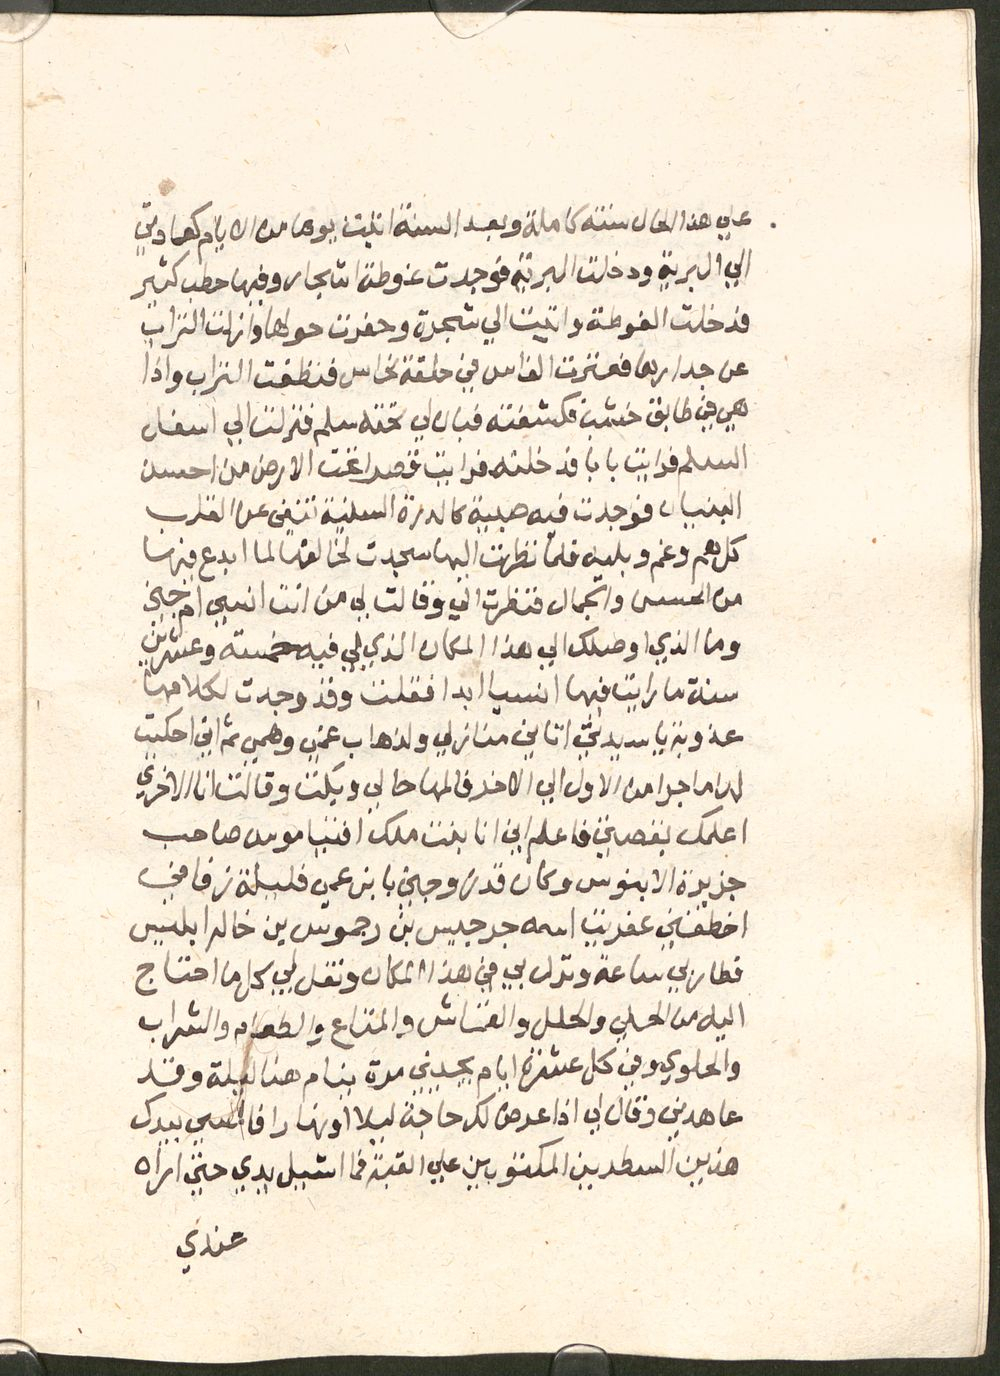 علي هذا الحال سنته كاملة وبعد السنة اتيت يوما من الايام كعادتي
الي البرية ودخلت البرية فوجدت غوطة اشجار وفيها حطب كثير
فدخلت الغوطة واتيت الي شجرة وحفرت حولها وازلت التراب
عن جدارها فعترت الفاس في حلقة نحاس فنظفت التراب واذا
هي في طابق خشب فكشفته فبان لي تحته سلم فنزلت الي اسفل
السلم فرايت بابا فدخلته فرايت قصرا تحت الارض من احسن
البنيان فوجدت فيه صبية كالدرة السنية تنفي عن القلب
كل هم وغم وبليه فلما نظرت اليها سجدت لخالقها لما ابدع فيها
من الحسن والجمال فنظرت الي وقالت لي من انت انسي ام جني
وما الذي اوصلك الي هذا المكان الذي لي فيه خمسته وعشرين
سنة ما رايت فيها انسيا ابدا فقلت وقد وجدت لكلامها
عذوبة يا سيدتي اتاني منازلي ولذهاب غمي وهمي ثم اني احكيت
لها ما جرا من الاول الي الاخر فالمها حالي وبكت وقالت انا الاخري
اعلمك بقصتي فاعلم اني انا بنت ملك افتيا موس صاحب
جزيرة الابنوس وكان قد زوجني بابن عمي فليلة زفافي
اخطفني عفريت اسمه جرجيس بن رجموس بن خالد ابليس
فطار بي ساعة ونزل بي في هذا المكان ونقل لي كل ما احتاج
اليه من الحلي والحلل والقماش والمتاع والطعام والشراب
والحلوي وفي كل عشرة ايام يجيني مرة ينام هنا ليلة وقد
عاهدني وقال لي اذا عرض لك حاجة ليلا او نهارا فالمسي بيدك
هذين السطرين المكتوبين علي القبة فما اشيل يدي حتي اراه
عندي